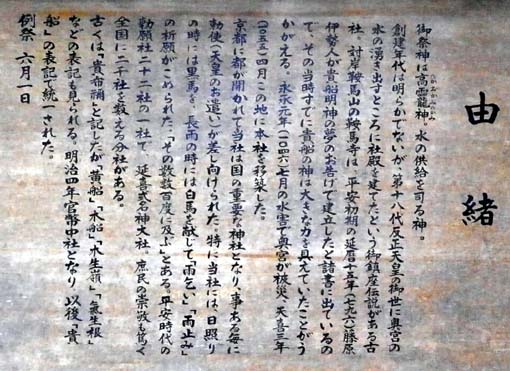 由緒
御祭神は高龗龍神。水の供給を司る神。
創建年代は明らかでないが、第十八代反正天皇の御世に奥宮の
水の湧き出すところに社殿を建てたという御鎮座伝説がある古
社。対岸鞍馬山の鞍馬寺は、平安初期の延暦十五年(七九六)藤原
伊勢人が貴船明神の夢のお告げで建立したと諸書に出ているの
で、その当時すでに貴船の神は大きな力を具えていたことがう
かがえる。永承元年(一〇四六)七月の水害で奥宮が被災、天喜三年
(一〇五五)四月この地に本社を移築した。
京都に都が開かれて当社は国の重要な神社となり、事ある毎に
勅使(天皇のお遣い)が差し向けられた。特に当社には、日照り
の時には黒馬を、長雨の時には白馬を献じて「雨乞い」「雨止み」
の祈願がこめられた。「その数数百度に及ぶ」とある。平安時代の
勅願社二十二社の一社で、延喜式名神大社、庶民の崇敬も篤く
全国に二千社を数える分社がある。
古くは「貴布禰」と記したが「黄船」「木船」「木生嶺」「氣生根」
などの表記も見られる。明治四年官幣中社となり、以後「貴
船」の表記で統一された。
例祭 六月一日